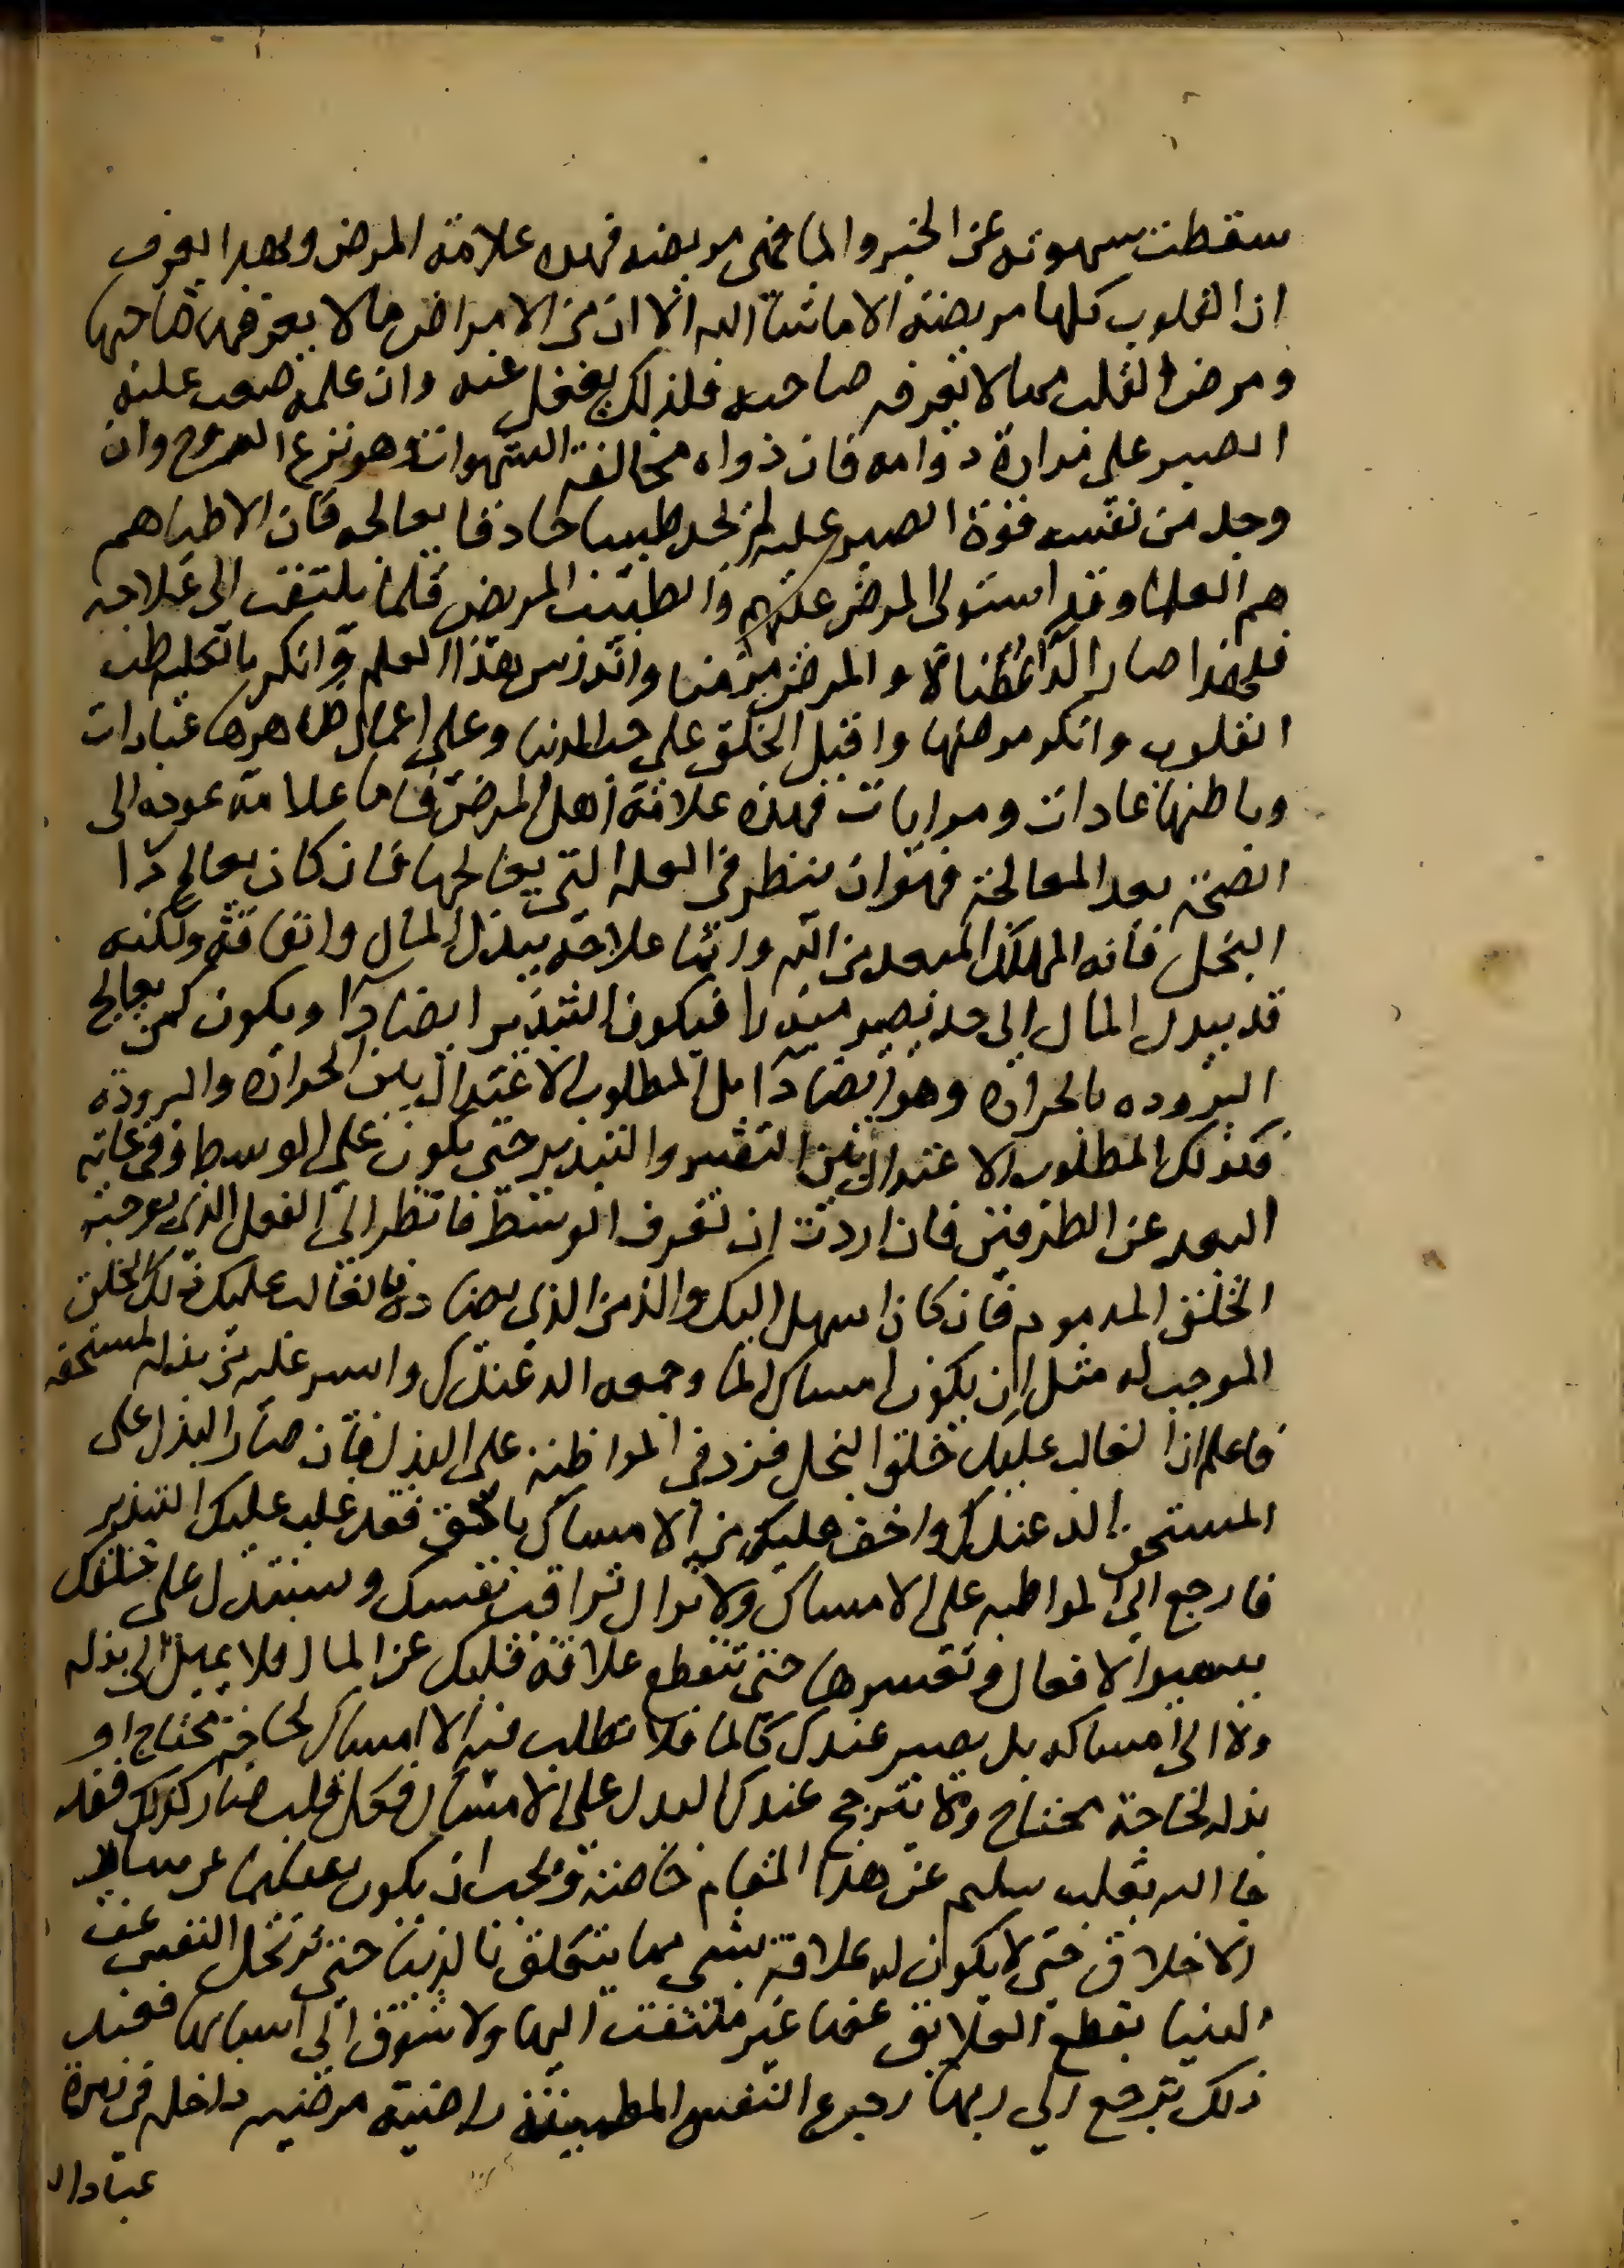 سقطت شهوته عن الخبز والما فهى مريضه فهده علامة المرض وبهدا يعرف
ان القلوب كلها مريضة الا ما شا الله الا ان من الامراض ما لا يعرفها صاحبها
ومرض القلب مما لا يعرفه صاحبه فلذلك يغفل عنه وان علمه صعب عليه
الصبر على مرارة دوامه فان دواه مخالفة الشهوات وهو نزع الروح وان
وجد من نفسه قوة الصبر عليه لم يجد طبيبا حاذقا يعالجه فان الاطبا هم
هم العلما وقد استولى المرض عليهم والطبيب المريض قلما يلتفت الى علاجه
فلهذا صار الدا عضالا والمرض مزمنا واندرس هذا العلم وانكر بالكليه طب
القلوب وانكر مرضها واقبل الخلق على حب الدنيا وعلى اعمال ظاهرها عبادات
وباطنها عادات ومرايات فهذه علامة اهل المرض فاما علامة عوده الى
الصحة بعد المعالجة فهو ان ينظر في العله التي يعالجها فان كان يعالج دا
البخل فانه المهلك المبعد من الله وانما علاجه ببذل المال وانفاقه ولكنه
قد يبدل المال الى حد يصير مبذرا فيكون التبذير ايضا دآ ويكون كمن يعالج
البروده بالحراره وهو ايضا دآ بل المطلوب الاعتدال بين الحراره والبرودة
فكذلك المطلوب الاعتدال بين التقتير والتبذير حتى يكون على الوسط وفي غاية
البعد عن الطرفين فان اردت ان تعرف الوسط فانظر الى الفعل الذى يوجبه
الخلق المدموم فان كان اسهل اليك والذ من الذى يضاده فالغالب عليك ذلك الخلق
الموجب له مثل ان يكون امساك الما وجمعه الد عندك وايسر عليك من بذله لمستحقه
فاعلم ان الغالب عليك خلق البخل فزد في المواظبة على البذل فان صار البذل على
المستحق الد عندك واخف عليك من الامساك بالحق فقد غلب عليك التبذير
فارجع الى المواظبه على الامساك ولا تزال تراقب نفسك وتستدل على خلقك
بتيسير الافعال وتعسيرها حتى تنقطع علاقة قلبك عن المال فلا يميل الى بذله
ولا الى امساكه بل يصير عندك كالما فلا تطلب فيه الا امساكه لحاجة محتاج او
بذله لحاجة محتاج ولا يترجح عندك البدل على الامساك فكل قلب صار كذلك فقد
جا الله بقلب سليم عن هذا المقام خاصة ويجب ان يكون سليما عن سائر
الاخلاق حتى لا يكون له علاقة بشى مما يتعلق بالدنيا حتى ترتحل النفس عن
الدنيا بقطع العلائق عنها غير ملتفت اليها ولا تتشوق الى اسبابها فعند
ذلك ترجع الى ربها رجوع النفس المطمئنة راضية مرضيه داخله في زمرة
عباد الله